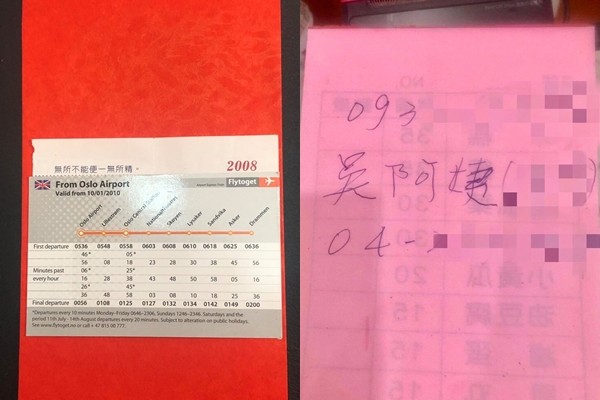 無所不能便一無所精。
2008
From Oslo Airport
Valid from 10/01/2010
Flytoget
Oslo Airport Lillestrøm Oslo Central Station Nationaltheatret Skøyen Lysaker Sandvika Asker Drammen
First departure 0536 0548 0558 0603 0608 0610 0618 0625 0636
46* 05*
56 08 18 23 28 30 38 45 56
Minutes past 06* 25*
every hour 16 28 38 43 48 50 58 05 16
26* 45*
36 48 58 03 08 10 18 25 36
Final departure 0056 0108 0125 0127 0132 0134 0142 0149 0200
*Departures every 10 minutes Monday-Friday 0646-2306, Sundays 1246-2346. Saturdays and the
period 11th July - 14th August departures every 20 minutes. Subject to alteration on public holidays.
See www.flytoget.no or call + 47 815 00 777.
093
吳阿捷(
04-